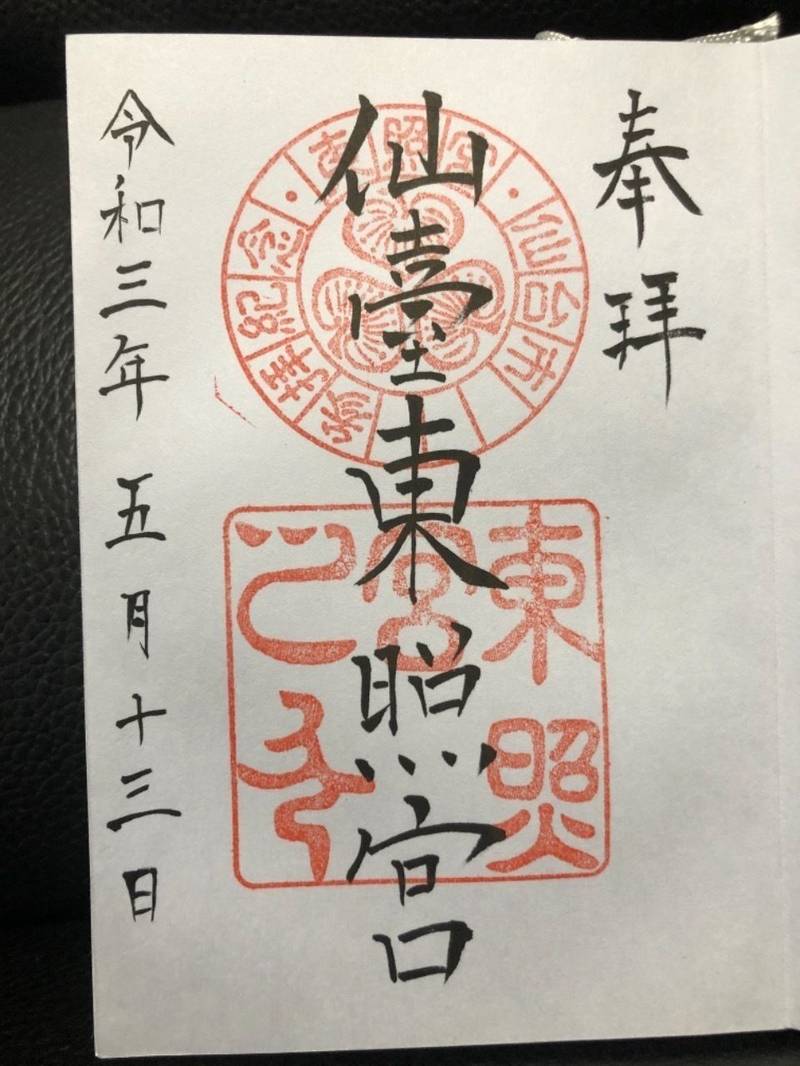 奉拝
仙臺東照宮
令和三年五月十三日
東照宮
仙台市
参拝紀念
東照宮之印